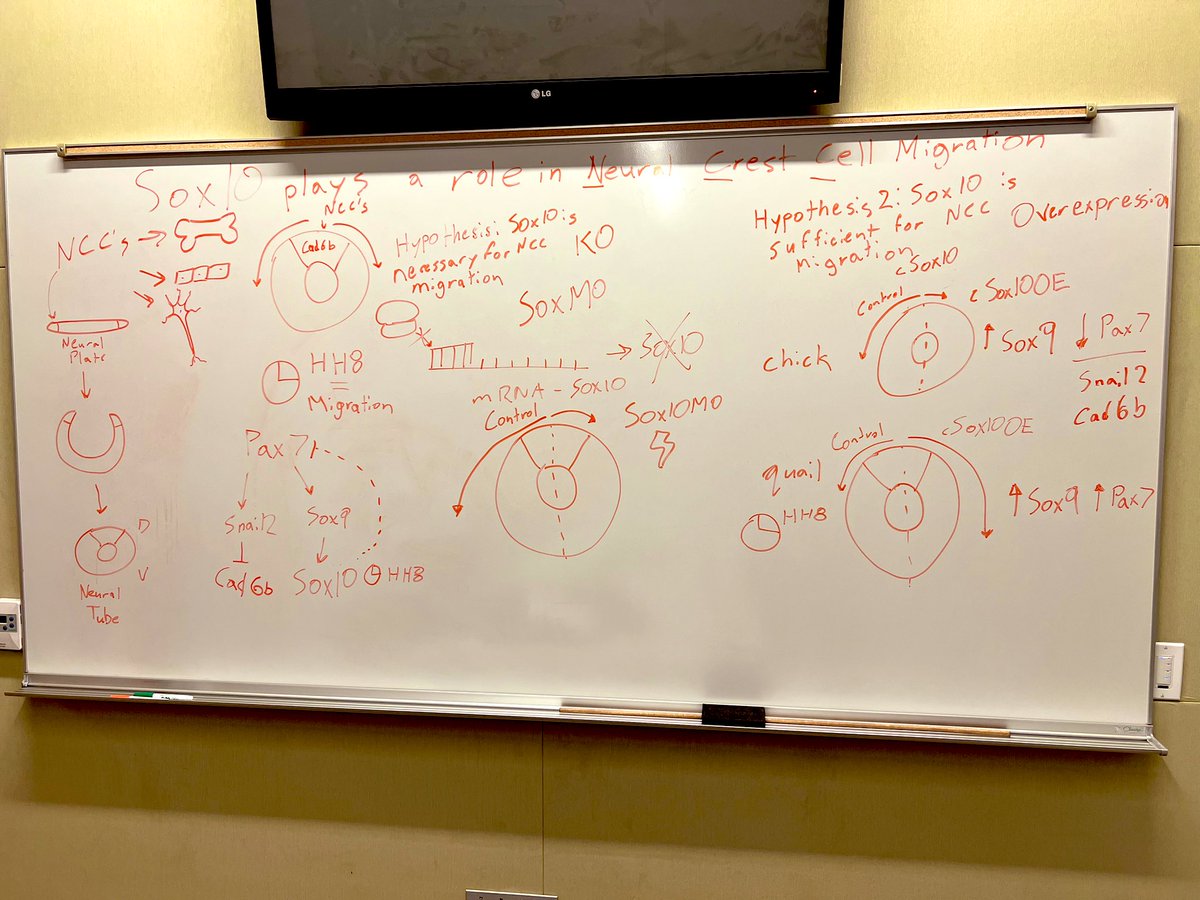 LG
Sox10 plays a role in Neural Crest Cell Migration
NCC's
Neural
Plate
D
V
Neural
Tube
NCC's
Cad6b
HH8
Migration
Pax7
Snail2
Sox9
Cad6b
Sox10
HH8
Hypothesis: Sox10 is
necessary for NCC
migration
KO
SoxMO
Sox10
mRNA - Sox10
Control
Sox10MO
Hypothesis 2: Sox10 is
sufficient for NCC
Migration
Overexpression
cSox10
chick
Control
cSox10OE
↑ Sox9
↓ Pax7
Snail2
Cad6b
quail
HH8
Control
cSox10OE
↑ Sox9 ↑ Pax7